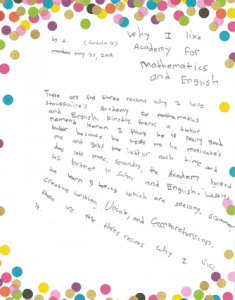 Why I like
Academy For
Mathematics
and English
by (Grade 6)
There are three reasons why I love
Academy for mathematics
and English. Firstly, there's a tutor
named I think he is really good
tutor because he helps me he motivate's
me and gets me better each time and
day lots more. Secondly, the Academy helped
us better in School and English. Lastly,
we learn 5 topics which are spelling, Grammar
creative writing, Vocab, and Comprehension.
These are the three reasons why I like